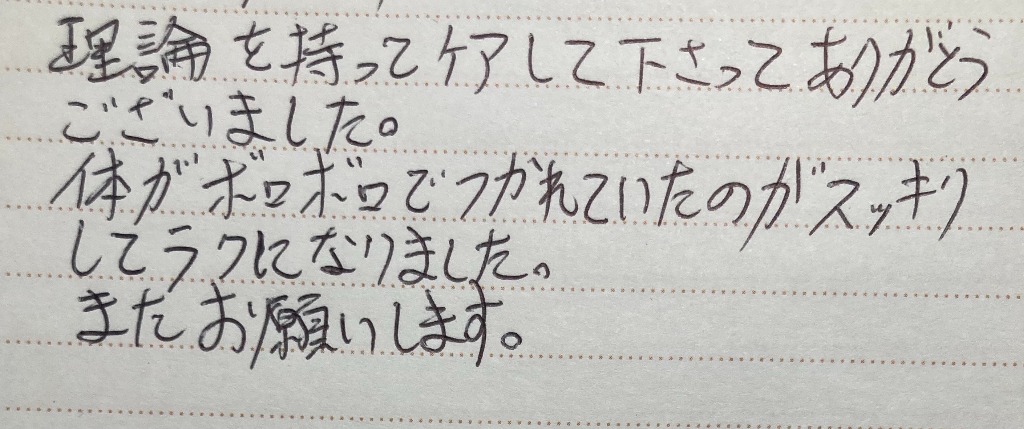 理論を持ってケアして下さってありがとう
ございました。
体がボロボロでつかれていたのがスッキリ
してラクになりました。
またお願いします。